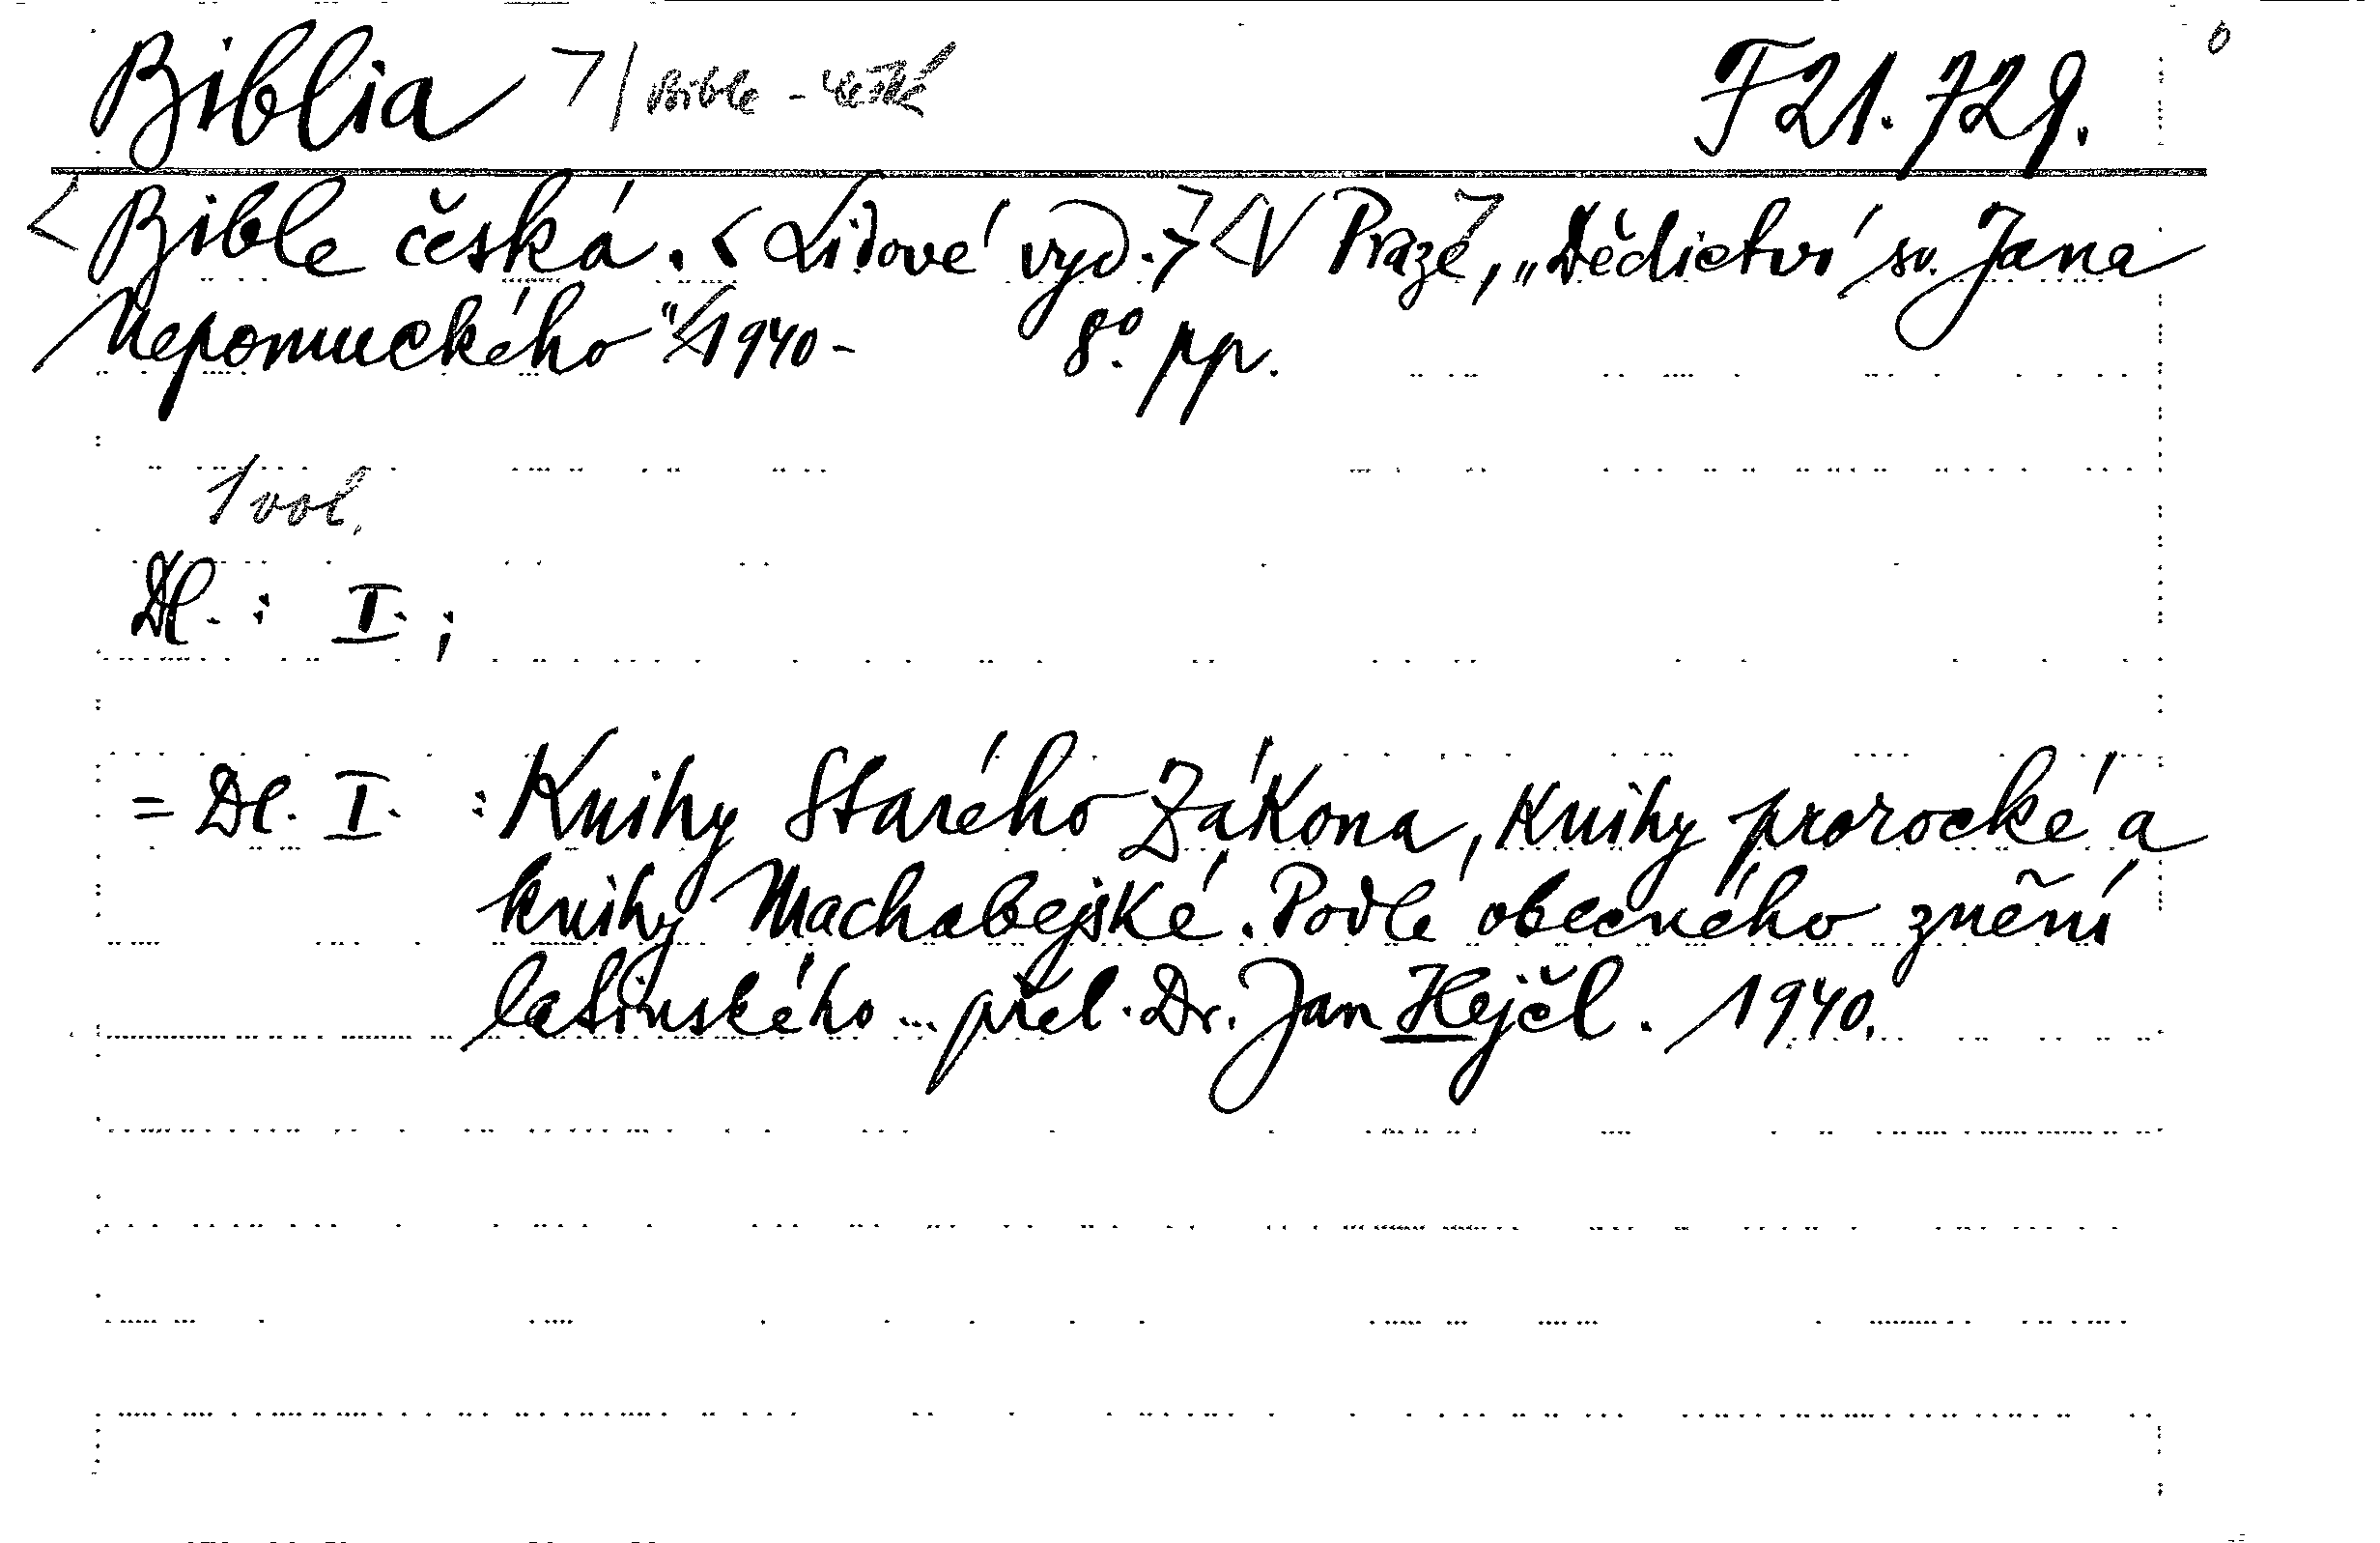 Biblia 7/ Bible - české F21.729.
<Bible česká. <Lidové vyd.> <V Praze, „Dědictví sv. Jana
Nepomuckého" <1940- 8° pp.
1 vol.
Dl.: I.;
= Dl. I. : Knihy Starého Zákona, Knihy prorocké a
knihy Machabejské. Podle obecného znění
latinského... přel. Dr. Jan Hejčl. 1940.